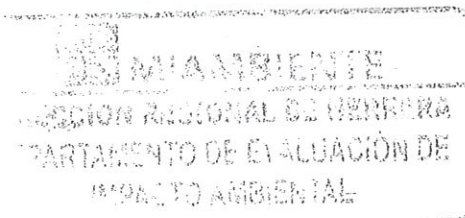 MIAMBIENTE
DIRECCIÓN REGIONAL DE HERRERA
DEPARTAMENTO DE EVALUACIÓN DE
IMPACTO AMBIENTAL